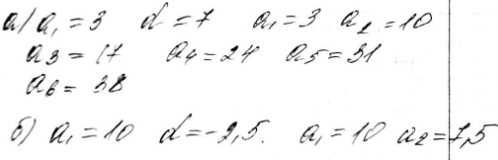 а) a₁ = 3 d = 7 a₁ = 3 a₂ = 10
a₃ = 17 a₄ = 24 a₅ = 31
a₆ = 38
б) a₁ = 10 d = -2,5. a₁ = 10 a₂ = 7,5